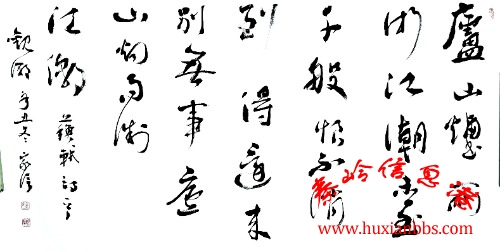 廬山煙雨
浙江潮未至
千般恨不消
到得還來
別無事廬
山烟雨浙
江潮 蘇軾詩
觀潮 辛丑冬
信息
www.huxianbbs.com